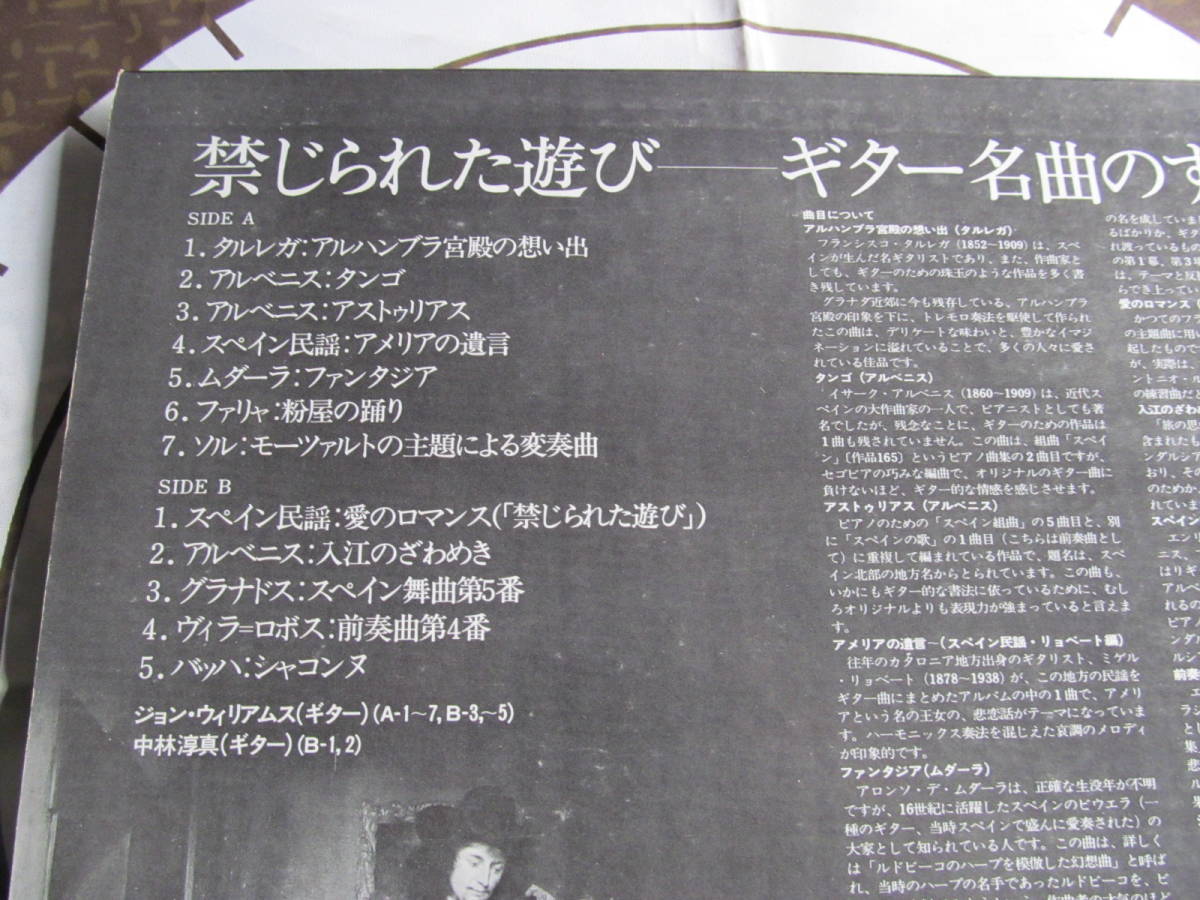 禁じられた遊び――ギター名曲のす
SIDE A
1. タルレガ:アルハンブラ宮殿の想い出
2. アルベニス:タンゴ
3. アルベニス:アストゥリアス
4. スペイン民謡:アメリアの遺言
5. ムダーラ:ファンタジア
6. ファリャ:粉屋の踊り
7. ソル:モーツァルトの主題による変奏曲
SIDE B
1. スペイン民謡:愛のロマンス(「禁じられた遊び」)
2. アルベニス:入江のざわめき
3. グラナドス:スペイン舞曲第5番
4. ヴィラ=ロボス:前奏曲第4番
5. バッハ:シャコンヌ
ジョン・ウィリアムス(ギター)(A-1~7, B-3,~5)
中林淳真(ギター)(B-1, 2)
曲目について
アルハンブラ宮殿の想い出(タルレガ)
フランシスコ・タルレガ(1852~1909)は、スペ
インが生んだ名ギタリストであり、また、作曲家と
しても、ギターのための珠玉のような作品を多く書
き残しています。
グラナダ近郊に今も残存している、アルハンブラ
宮殿の印象を下に、トレモロ奏法を駆使して作られ
たこの曲は、デリケートな味わいと、豊かなイマジ
ネーションに溢れていることで、多くの人々に愛さ
れている佳品です。
タンゴ(アルベニス)
イサーク・アルベニス(1860~1909)は、近代ス
ペインの大作曲家の一人で、ピアニストとしても著
名でしたが、残念なことに、ギターのための作品は
1曲も残されていません。この曲は、組曲「スペイ
ン」〔作品165〕というピアノ曲集の2曲目ですが、
セゴビアの巧みな編曲で、オリジナルのギター曲に
負けないほど、ギター的な情感を感じさせます。
アストゥリアス(アルベニス)
ピアノのための「スペイン組曲」の5曲目と、別
に「スペインの歌」の1曲目(こちらは前奏曲とし
て)に重複して編まれている作品で、題名は、スペ
イン北部の地方名からとられています。この曲も、
いかにもギター的な書法に依っているために、むし
ろオリジナルよりも表現力が強まっていると言えま
す。
アメリアの遺言~(スペイン民謡・リョベート編)
往年のカタロニア地方出身のギタリスト、ミゲル
・リョベート(1878~1938)が、この地方の民謡を
ギター曲にまとめたアルバムの中の1曲で、アメリ
アという名の王女の、悲恋話がテーマになっていま
す。ハーモニックス奏法を混じえた哀調のメロディ
が印象的です。
ファンタジア(ムダーラ)
アロンソ・デ・ムダーラは、正確な生没年が不明
ですが、16世紀に活躍したスペインのビウエラ(一
種のギター、当時スペインで盛んに愛奏された)の
大家として知られている人です。この曲は、詳しく
は「ルドビーコのハープを模倣した幻想曲」と呼ば
れ、当時のハープの名手であったルドビーコを、ビ
の名を成していま
るばかりか、ギタ
れ渡っているもの
の第1幕、第3場
は、テーマと反
らでき上ってい
愛のロマンス
かつてのフラ
の主題曲に用い
起したもので
が、実際は、
ントニオ・
の練習曲だと
入江のざわ
「旅の思
含まれたも
ンダルシア
おり、そ
のためか
れていま
スペイン
エンリ
ニス、
はリギ
アルベ
れるの
ピアノ
ンダ
ルシ
前奏